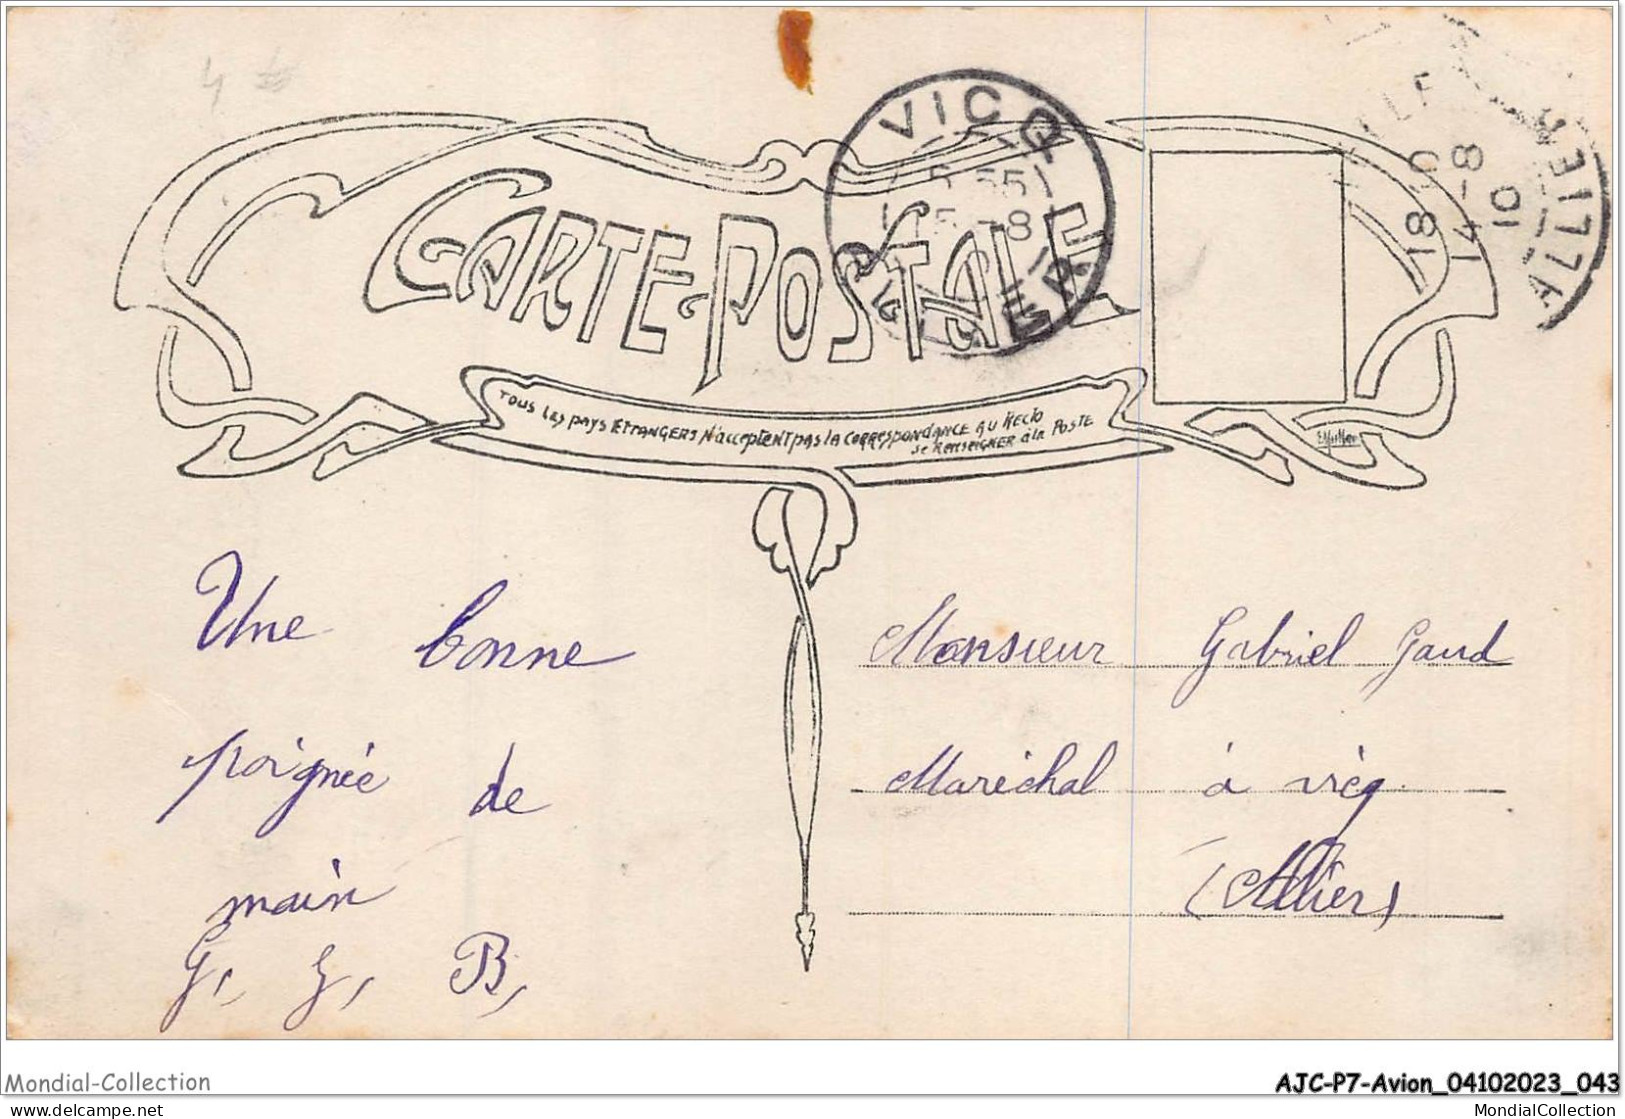 VICQ
5 55
15 -8
ALLIER
18 30
14 - 8
10
ALLIER
CARTE-POSTALE
TOUS LES PAYS ETRANGERS N'ACCEPTENT PAS LA CORRESPONDANCE AU RECTO
SE RENSEIGNER à la POSTE
EMuller
Une bonne
poignée de
main
G, G, B,
Monsieur Gabriel Gaud
Maréchal à Vicq
(Allier)
Mondial-Collection
AJC-P7-Avion_04102023_043
https://www.delcampe.net
MondialCollection